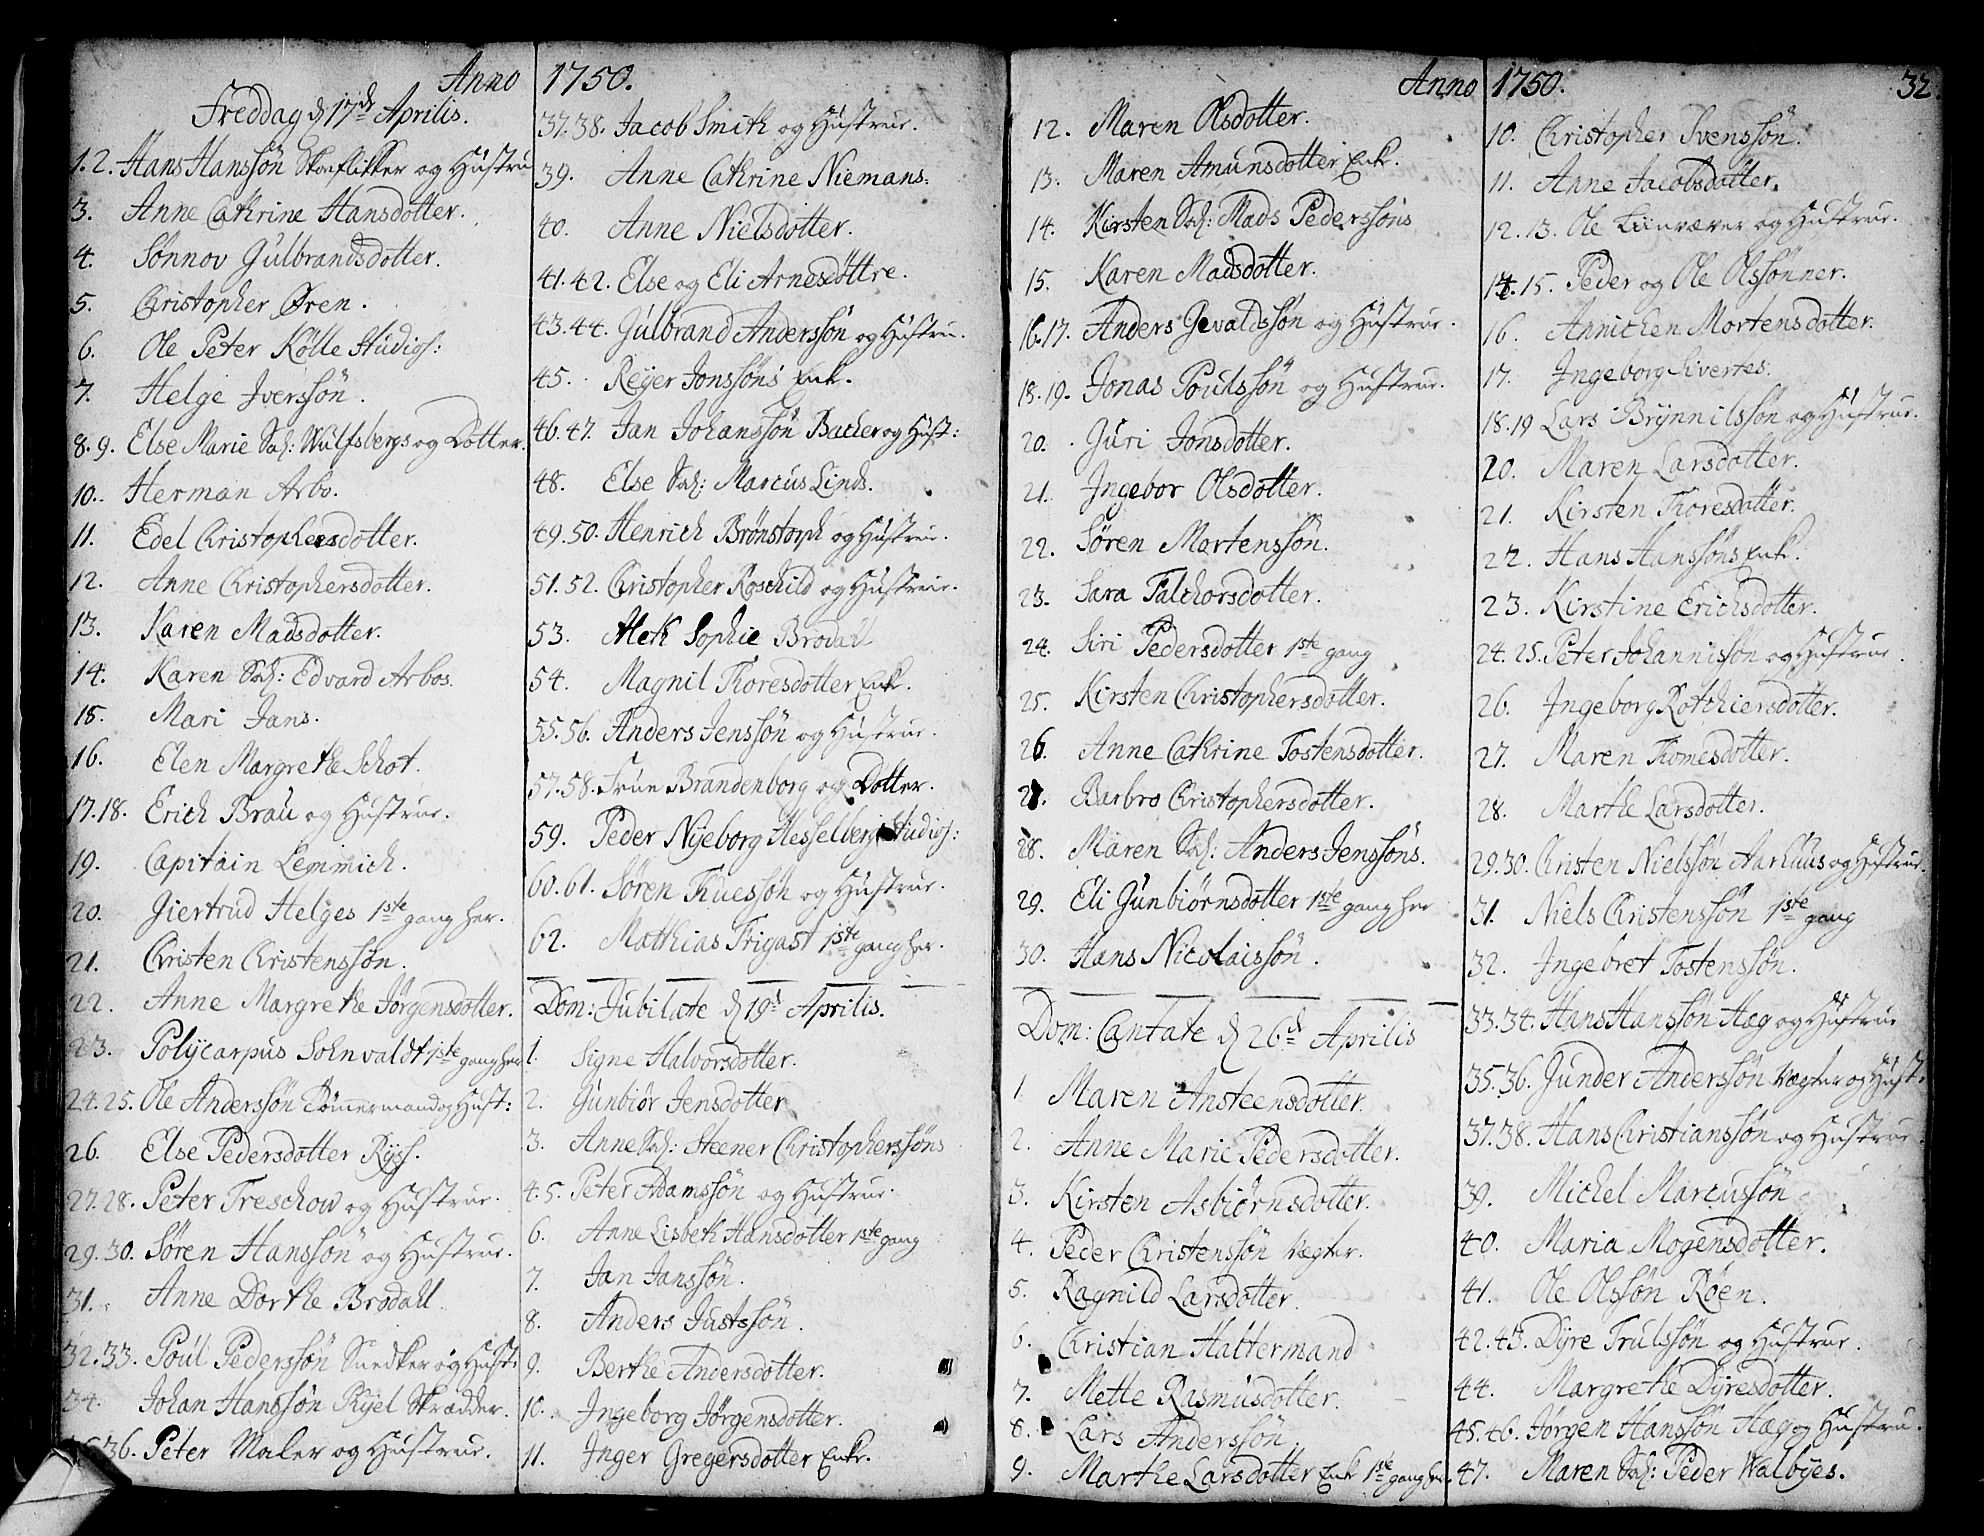 Anno 1750.
Freddag d 17de Aprilis.
1. 2. Hans Hanssøn Skoeflikker og Hüstru
3. Anne Cathrine Hansdotter.
4. Sønnov Gülbrandsdotter.
5. Christopher Øren.
6. Ole Peter Kølle Stüdios:
7. Helge Iverssøn.
8. 9. Else Marie Sal: Wülfsbergs og Dotter.
10. Herman Arbo.
11. Edel Christophersdotter.
12. Anne Christophersdotter.
13. Karen Madsdotter.
14. Karen Sal: Edvard Arbos.
15. Mari Jans.
16. Elen Margrethe Schot.
17. 18. Erich Braü og Hustrue.
19. Capitain Lemmich.
20. Giertrud Helges 1ste gang her.
21. Christen Christenssøn.
22. Anne Margrethe Jørgensdotter.
23. Polycarpus Sohnvaldt 1ste gang her
24. 25. Ole Anderssøn Tømmermand og Hust:
26. Else Pedersdotter Ryss.
27. 28. Peter Treschow og Hustrue.
29. 30. Søren Hanssøn og Hustrue.
31. Anne Dorthe Brodahl.
32. 33. Poül Pederssøn Snedker og Hust:
34. Johan Hanssøn Ryel Skrædder.
36. Peter Maler og Hustrue.
37. 38. Jacob Smith og Hüstrue.
39. Anne Cathrine Niemans.
40. Anne Nielsdotter.
41. 42. Else og Eli Arnesdøttre.
43. 44. Gülbrand Anderssøn og Hüstru.
45. Reyer Jonssøns Enk.
46. 47. Jan Johanssøn Bacher og Hüst:
48. Else Sal: Marcüs Linds.
49. 50. Henrich Brønstorph og Hüstrue.
51. 52. Christopher Roschild og Hüstrue.
53. Aleth Sophie Brodahl
54. Magnil Thoresdotter Enk.
55. 56. Anders Jenssøn og Hüstrue.
57. 58. Früe Brandenborg og Dotter.
59. Peder Nyeborg Hesselberg Stüdios:
60. 61. Søren Thuessøn og Hüstrue.
62. Mathias Frigast 1ste gang her.
Dom: Jubilate d 19d Aprilis.
1. Signe Halvorsdotter.
2. Günbiør Jensdotter
3. Anne Sal: Steener Christopherssøns
4. 5. Peter Adamssøn og Hustrue.
6. Anne Lisbeth Hansdotter 1ste gang
7. Jan Janssøn.
8. Anders Justssøn.
9. Berthe Andersdotter.
10. Ingeborg Jørgensdotter.
11. Inger Gregersdotter Enke.
Anno 1750. 32.
12. Maren Olsdotter.
13. Maren Amunsdotter Enk.
14. Kirsten Sal: Mads Pederssøns
15. Karen Madsdotter.
16. 17. Anders Gevaldssøn og Hüstrue.
18. 19. Jonas Poulssøn og Hustrue.
20. Guri Jonsdotter.
21. Ingebor Olsdotter.
22. Søren Mortenssøn.
23. Sara Falchorsdotter.
24. Siri Pedersdotter 1ste gang
25. Kirsten Christophersdotter.
26. Anne Cathrine Tostensdotter.
27. Barbro Christophersdotter.
28. Maren Sal: Anders Jenssøns.
29. Eli Günbiørnsdotter 1ste gang her
30. Hans Nicolaissøn.
Dom: Cantate d 26d Aprilis
1. Maren Ansteensdotter.
2. Anne Marie Pedersdotter.
3. Kirsten Asbiørnsdotter.
4. Peder Christenssøn Vægter.
5. Ragnild Larsdotter.
6. Christian Haltermand
7. Mette Rasmusdotter.
8. Lars Anderssøn.
9. Marthe Larsdotter Enk 1ste gang her.
10. Christopher Svenssøn.
11. Anne Jacobsdatter.
12. 13. Ole Linvæver og Hustrue.
14. 15. Peder og Ole Olssønner.
16. Annichen Mortensdotter.
17. Ingeborg Siverts.
18. 19 Lars Brynnilssøn og Hüstrue.
20. Maren Larsdotter.
21. Kirsten Thoresdotter.
22. Hans Hanssøns Enk.
23. Kirstine Erichsdotter.
24. 25. Peter Johannissøn og Hustrue.
26. Ingeborg Rotchiersdotter.
27. Maren Thomesdotter.
28. Marthe Larsdotter.
29. 30. Christen Nielssøn Aarhuus og Hüstrue.
31. Niels Christenssøn 1ste gang
32. Ingebret Tostenssøn.
33. 34. Hans Hanssøn Hæg og Hüstrue
35. 36. Gunder Anderssøn Vægter og Hüst.
37. 38. Hans Christianssøn og Hustrue.
39. Michel Marcussøn
40. Maria Mogensdotter.
41. Ole Olssøn Røen.
42. 43. Dyre Trülssøn og Hustrue.
44. Margrethe Dyresdotter.
45. 46. Jørgen Hanssøn Hæg og Hustru.
47. Maren Sal: Peder Walbyes.